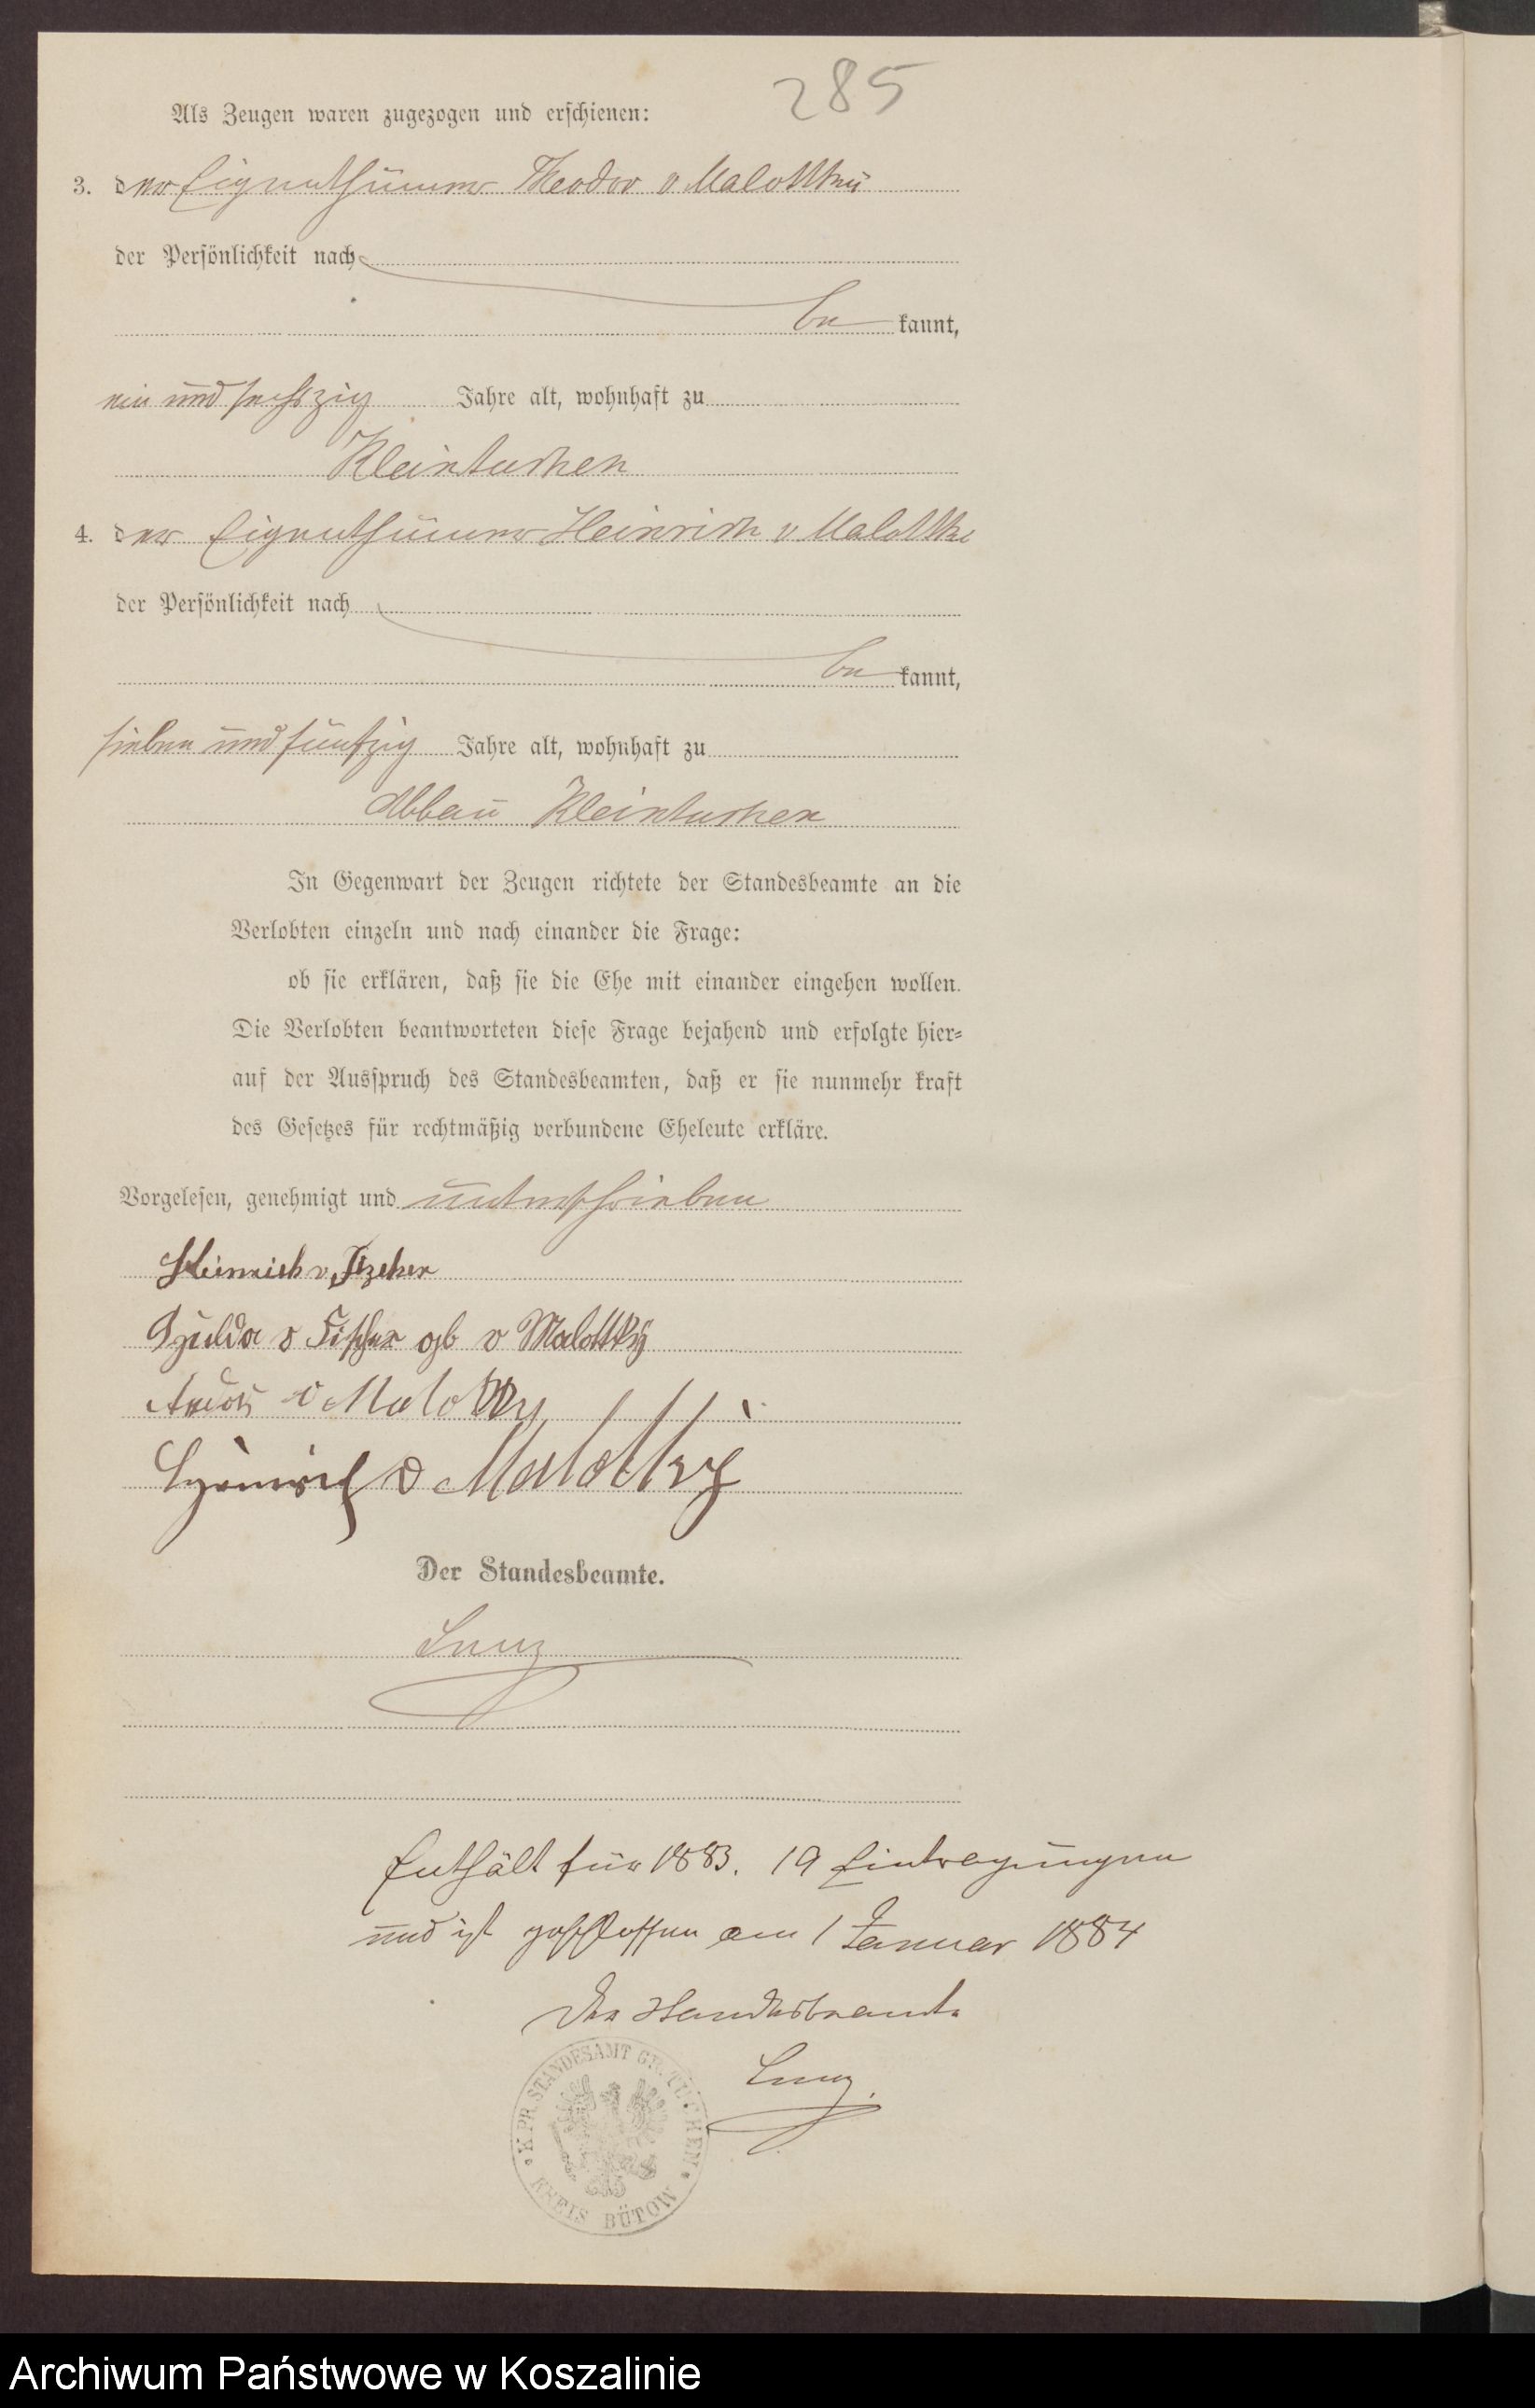 285
Als Zeugen waren zugezogen und erschienen:
3. der Eigenthümer Theodor v Malottki
der Persönlichkeit nach
be kannt,
ein und sechszig Jahre alt, wohnhaft zu
Kleintuchen
4. der Eigenthümer Heinrich v Malottki
der Persönlichkeit nach
be kannt,
sieben und fünfzig Jahre alt, wohnhaft zu
Abbau Kleintuchen
In Gegenwart der Zeugen richtete der Standesbeamte an die
Verlobten einzeln und nach einander die Frage:
ob sie erklären, daß sie die Ehe mit einander eingehen wollen.
Die Verlobten beantworteten diese Frage bejahend und erfolgte hier-
auf der Ausspruch des Standesbeamten, daß er sie nunmehr kraft
des Gesetzes für rechtmäßig verbundene Eheleute erkläre.
Vorgelesen, genehmigt und unterschrieben
Heinrich v
Hulda v Fischer gb v Malottky
v Malottky
Heinrich v Malottky
Der Standesbeamte.
Enthält für 1883. 19 Eintragungen
und ist geschlossen am 1 Januar 1884
Der Standesbeamte
K. PR. STANDESAMT GR. TUCHEN
KREIS BÜTOW
Archiwum Państwowe w Koszalinie